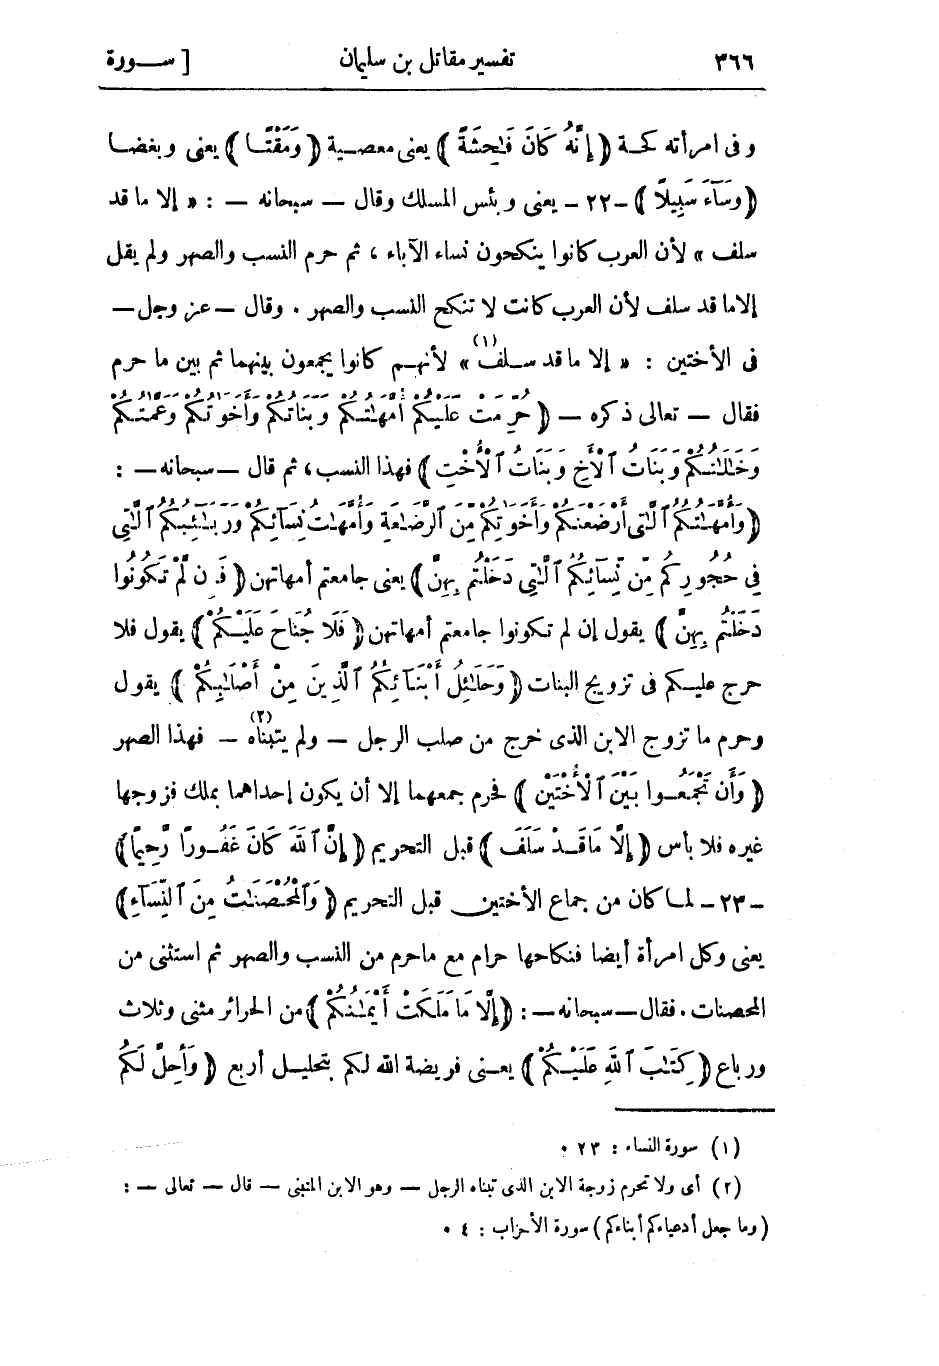 ٣٦٦ تفسير مقاتل بن سليمان [ ســورة
وفى امرأته كحة ( إِنَّهُ كَانَ فَـٰحِشَةً ) يعنى معصية ( وَمَقْتًا ) يعنى وبغضا
( وَسَآءَ سَبِيلًا ) -٢٢- يعنى وبئس المسلك وقال — سبحانه — : « إلا ما قد
سلف » لأن العرب كانوا ينكحون نساء الآباء ، ثم حرم النسب والصهر ولم يقل
إلا ما قد سلف لأن العرب كانت لا تنكح النسب والصهر . وقال — عز وجل —
فى الأختين : « إلا ما قد سلف(١) » لأنهم كانوا يجمعون بينهما ثم بين ما حرم
فقال — تعالى ذكره — ( حُرِّمَتْ عَلَيْكُمْ أُمَّهَـٰتُكُمْ وَبَنَاتُكُمْ وَأَخَوَٰتُكُمْ وَعَمَّـٰتُكُمْ
وَخَـٰلَـٰتُكُمْ وَبَنَاتُ ٱلْأَخِ وَبَنَاتُ ٱلْأُخْتِ ) فهذا النسب ، ثم قال — سبحانه — :
( وَأُمَّهَـٰتُكُمُ ٱلَّـٰتِى أَرْضَعْنَكُمْ وَأَخَوَٰتُكُم مِّنَ ٱلرَّضَـٰعَةِ وَأُمَّهَـٰتُ نِسَآئِكُمْ وَرَبَـٰٓئِبُكُمُ ٱلَّـٰتِى
فِى حُجُورِكُم مِّن نِّسَآئِكُمُ ٱلَّـٰتِى دَخَلْتُم بِهِنَّ ) يعنى جامعتم أمهاتهن ( فَإِن لَّمْ تَكُونُوا
دَخَلْتُم بِهِنَّ ) يقول إن لم تكونوا جامعتم أمهاتهن ( فَلَا جُنَاحَ عَلَيْكُمْ ) يقول فلا
حرج عليكم فى تزويج البنات ( وَحَلَـٰٓئِلُ أَبْنَآئِكُمُ ٱلَّذِينَ مِنْ أَصْلَـٰبِكُمْ ) يقول
وحرم ما تزوج الابن الذى خرج من صلب الرجل — ولم يتبناه(٢) — فهذا الصهر
( وَأَن تَجْمَعُوا بَيْنَ ٱلْأُخْتَيْنِ ) فحرم جمعهما إلا أن يكون إحداهما بملك فزوجها
غيره فلا بأس ( إِلَّا مَا قَدْ سَلَفَ ) قبل التحريم ( إِنَّ ٱللَّهَ كَانَ غَفُورًا رَّحِيمًا )
-٢٣- لما كان من جماع الأختين قبل التحريم ( وَٱلْمُحْصَنَـٰتُ مِنَ ٱلنِّسَآءِ )
يعنى وكل امرأة أيضا فنكاحها حرام مع ما حرم من النسب والصهر ثم استثنى من
المحصنات . فقال — سبحانه — : ( إِلَّا مَا مَلَكَتْ أَيْمَـٰنُكُمْ ) من الحرائر مثنى وثلاث
ورباع ( كِتَـٰبَ ٱللَّهِ عَلَيْكُمْ ) يعنى فريضة الله لكم بتحليل أربع ( وَأُحِلَّ لَكُم
(١) سورة النساء : ٢٣ .
(٢) أى ولا تحرم زوجة الابن الذى تبناه الرجل — وهو الابن المتبنى — قال — تعالى — :
( وما جعل أدعياءكم أبناءكم ) سورة الأحزاب : ٤ .